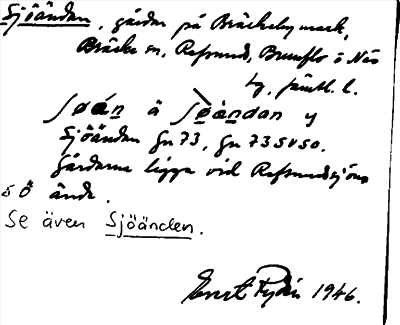 Sjöändan, gårdar på Bräckebymark,
Bräcke sn, Refsunds, Brunflo o Näs
tg, Jämtl. l.
ʃøán å ʃøàndan y
Sjöändan Gn 73, Gn 73 SV SO.
Gårdarna ligga vid Refsundssjöns
s ö ände.
Se även Sjöänden.
Ernst 1946.